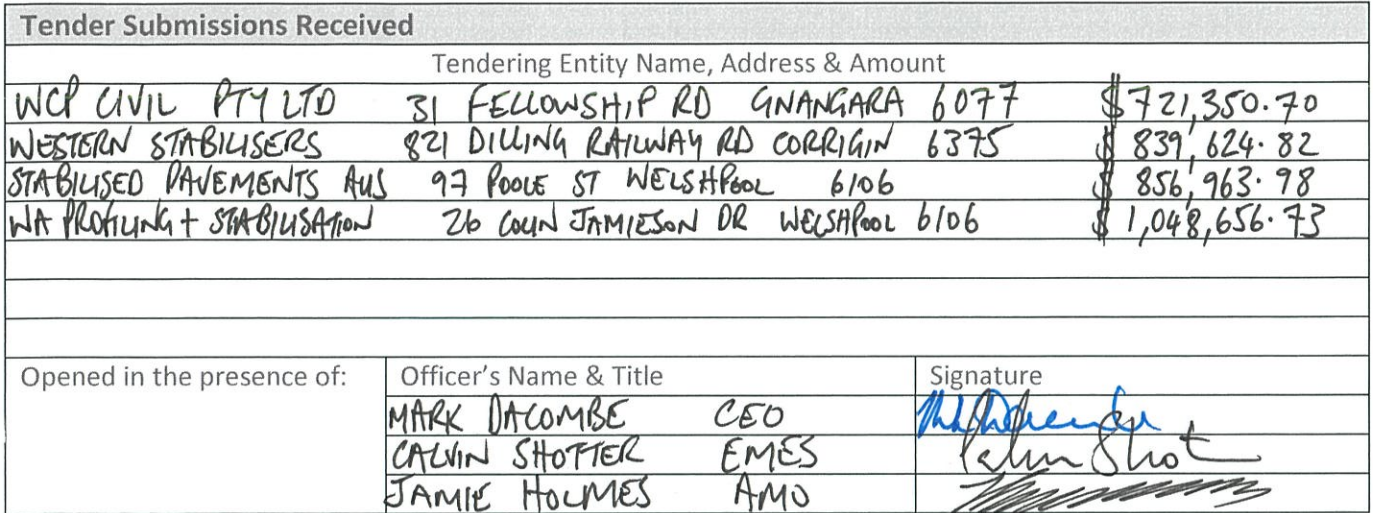 Tender Submissions Received
Tendering Entity Name, Address & Amount
WCP CIVIL PTY LTD 31 FELLOWSHIP RD GNANGARA 6077 $721,350.70
WESTERN STABILISERS 821 DILLING RAILWAY RD CORRIGIN 6375 $ 839,624.82
STABILISED PAVEMENTS AUS 97 POOLE ST WELSHPOOL 6106 $ 856,963.98
WA PROFILING + STABILISATION 26 COLIN JAMIESON DR WELSHPOOL 6106 $ 1,048,656.73
Opened in the presence of: Officer's Name & Title Signature
MARK DACOMBE CEO
CALVIN SHOTTER EMES
JAMIE HOLMES AMO